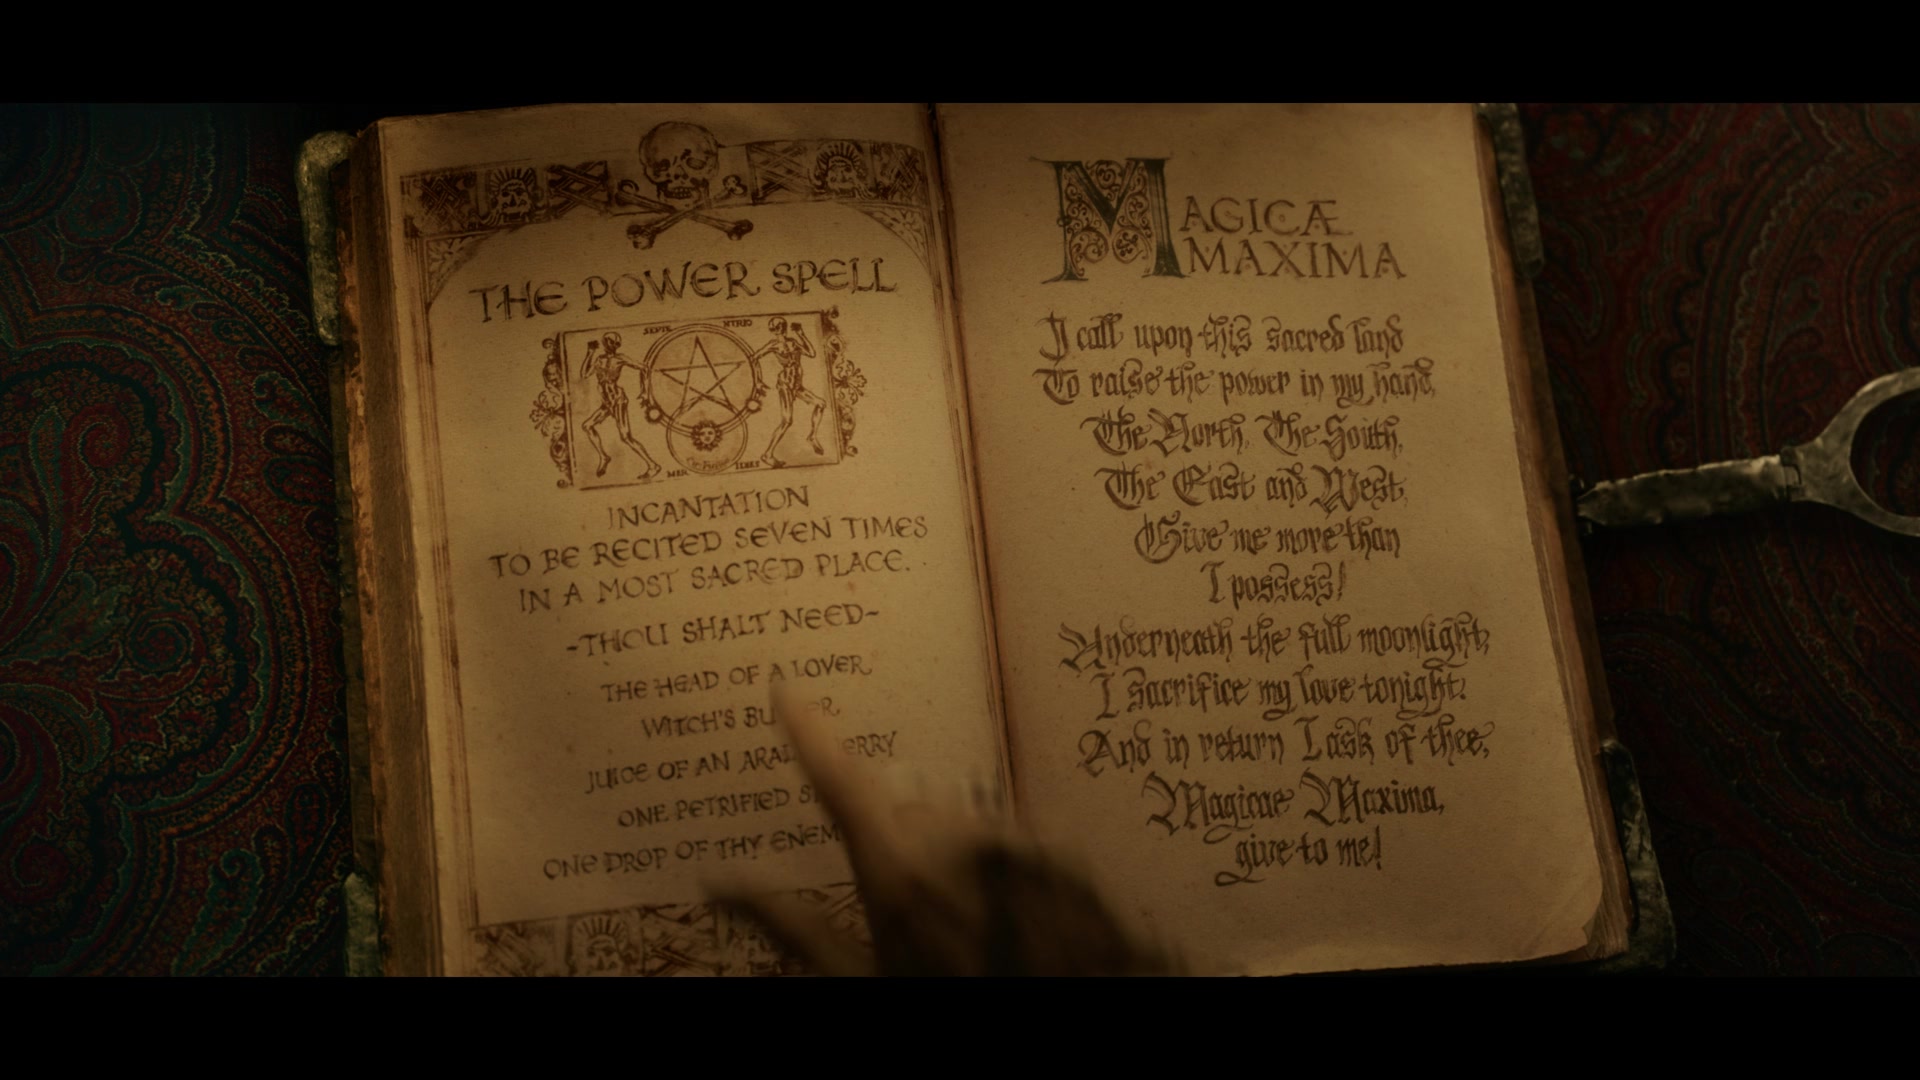 THE POWER SPELL
INCANTATION
TO BE RECITED SEVEN TIMES
IN A MOST SACRED PLACE.
-THOU SHALT NEED-
THE HEAD OF A LOVER
WITCH'S
JUICE OF AN
ONE PETRIFIED
ONE DROP OF THY
MAGICÆ
MAXIMA
I call upon this sacred land
To raise the power in my hand,
The North, The South,
The East and West,
Give me more than
I possess!
Underneath the full moonlight,
I sacrifice my love tonight.
And in return I ask of thee,
Magicae Maxima,
give to me!